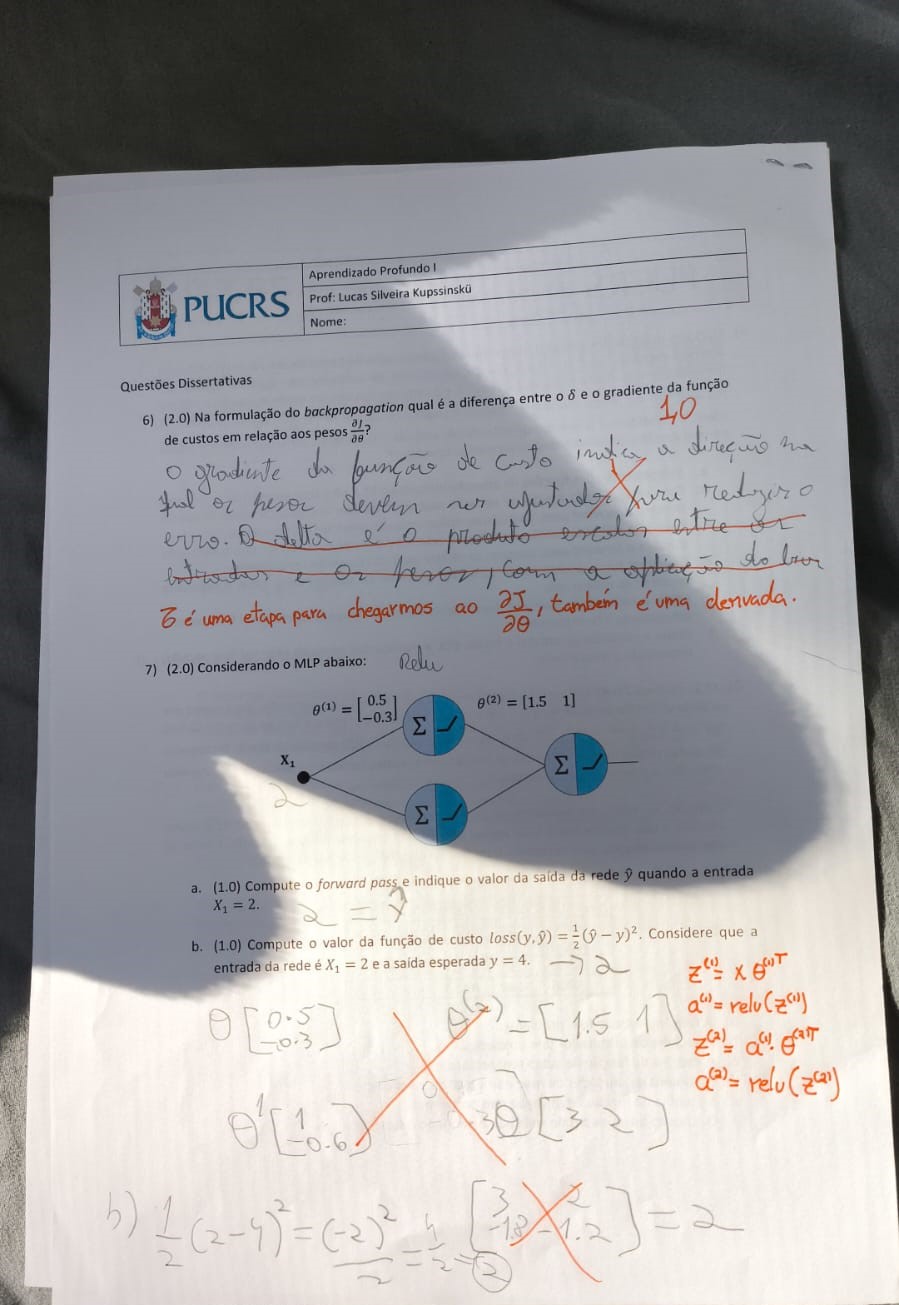 PUCRS
Aprendizado Profundo I
Prof: Lucas Silveira Kupssinskü
Nome:
Questões Dissertativas
6) (2.0) Na formulação do backpropagation qual é a diferença entre o δ e o gradiente da função
de custos em relação aos pesos ∂J/∂θ?
1,0
O gradiente da função de custo indica a direção na
qual os pesos devem ser ajustados para reduzir o
erro. O delta é o produto escalar entre as
entradas e os pesos, com a aplicação do
δ é uma etapa para chegarmos ao ∂J/∂θ, também é uma derivada.
7) (2.0) Considerando o MLP abaixo:
Relu
θ⁽¹⁾ = [0.5
−0.3]
θ⁽²⁾ = [1.5 1]
Σ
X₁
Σ
2
Σ
a. (1.0) Compute o forward pass e indique o valor da saída da rede ŷ quando a entrada
X₁ = 2.
2 = ŷ
b. (1.0) Compute o valor da função de custo loss(y, ŷ) = ½(ŷ − y)². Considere que a
entrada da rede é X₁ = 2 e a saída esperada y = 4.
→ 2
z⁽¹⁾= x θ⁽¹⁾ᵀ
a⁽¹⁾= relu(z⁽¹⁾)
z⁽²⁾= a⁽¹⁾. θ⁽²⁾ᵀ
a⁽²⁾= relu(z⁽²⁾)
θ [0.5
−0.3]
θ⁽²⁾ = [1.5 1]
θ¹ [1
−0.6]
θ [3 2]
b) 1/2 (2−4)² = (−2)²/2 = 4/2 = 2
[3 2
−1.8 −1.2] = 2